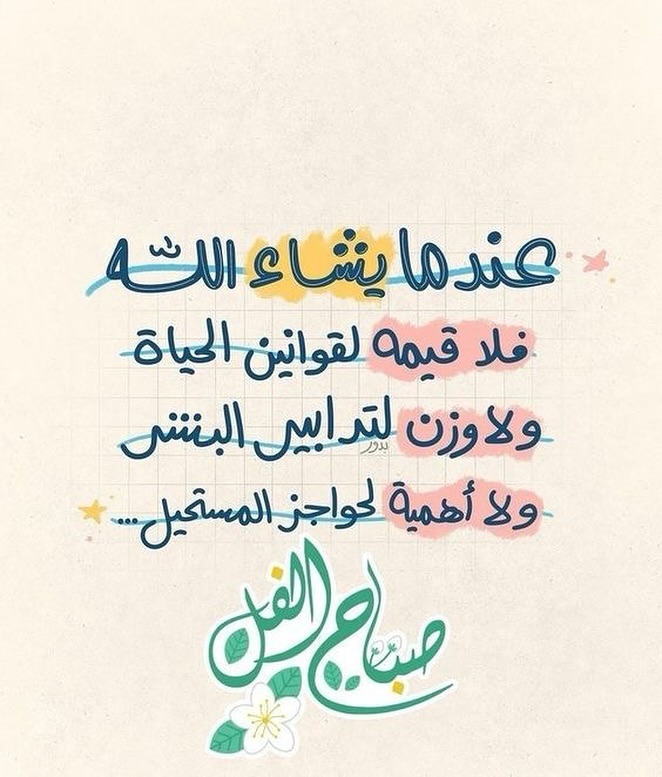 عندما يشاء الله
فلا قيمه لقوانين الحياة
ولا وزن لتدابير البشر
بدور
ولا أهمية لحواجز المستحيل...
صباح الفل